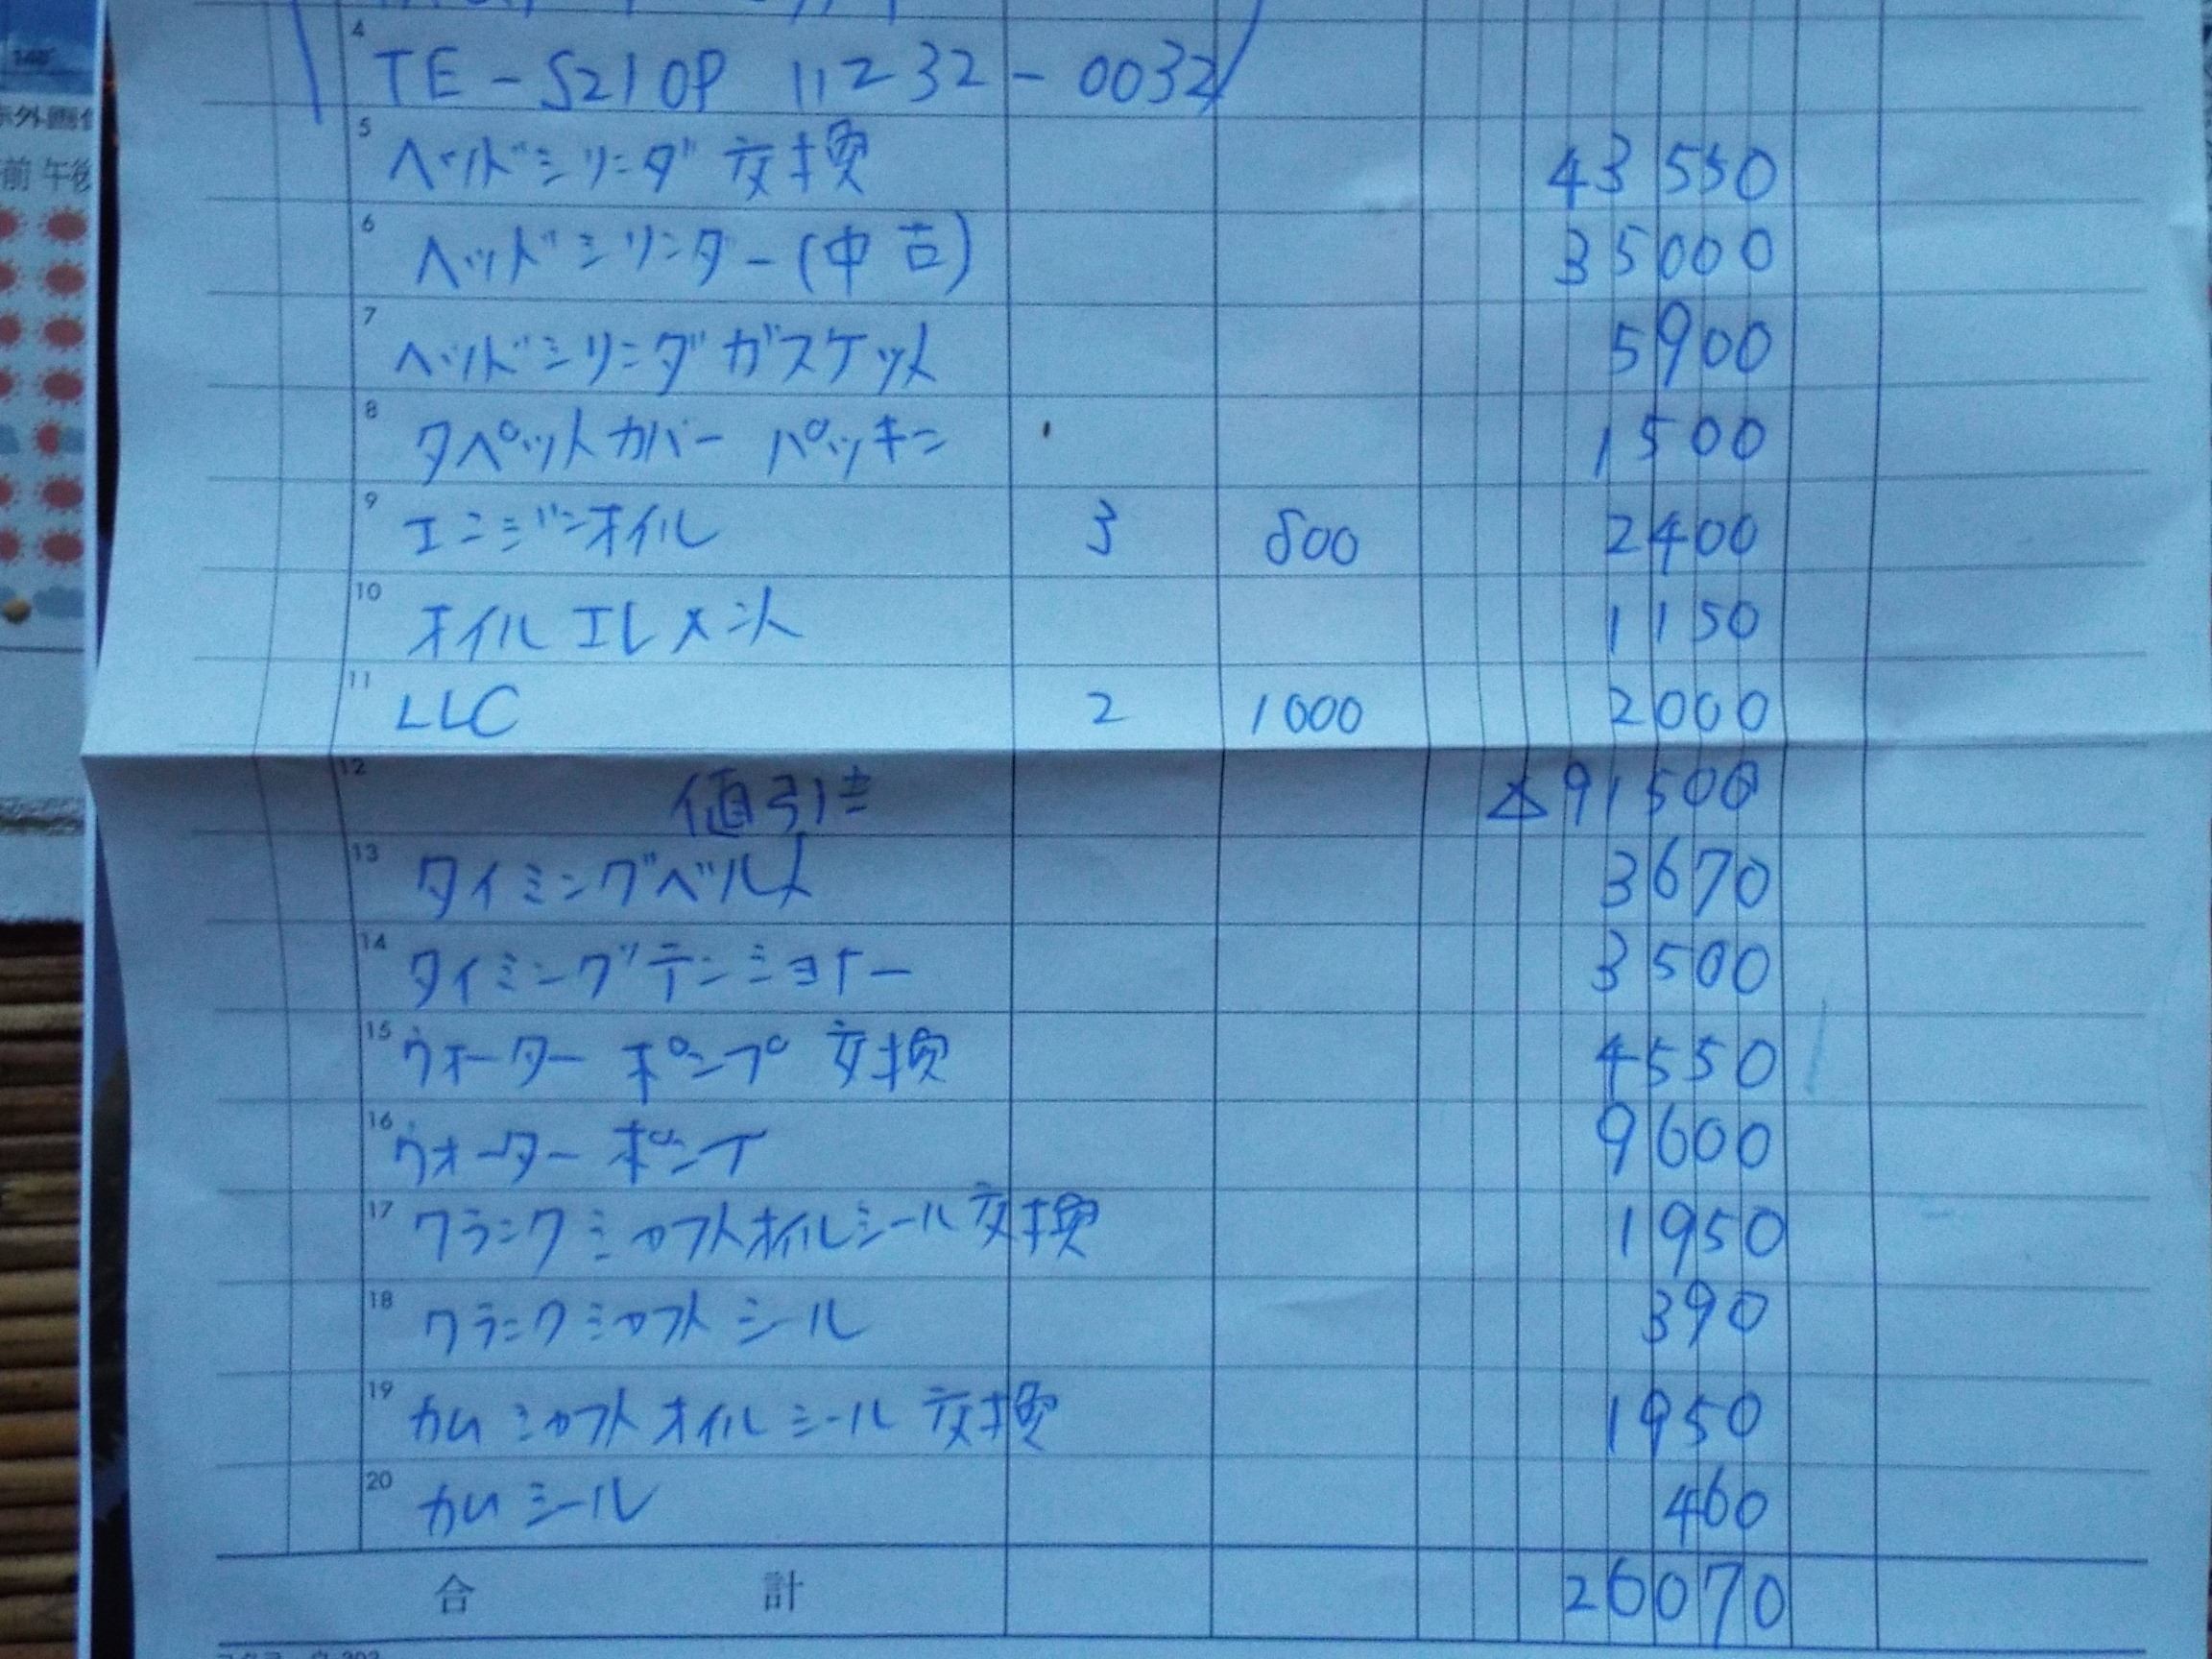 140°
赤外画像
前 午後
4 TE-S210P 11232-0032
5 ヘッドシリンダ 交換 43550
6 ヘッドシリンダー(中古) 35000
7 ヘッドシリンダガスケット 5900
8 タペットカバー パッキン 1500
9 エンジンオイル 3 800 2400
10 オイルエレメント 1150
11 LLC 2 1000 2000
12 値引き △91500
13 タイミングベルト 3670
14 タイミングテンショナー 3500
15 ウォーターポンプ 交換 4550
16 ウォーターポンプ 9600
17 クランクシャフトオイルシール交換 1950
18 クランクシャフトシール 390
19 カムシャフトオイルシール交換 1950
20 カムシール 460
合計 26070